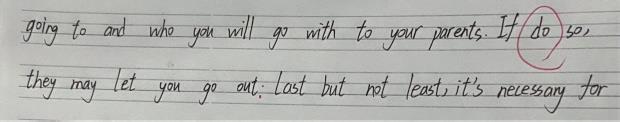 going to and who you will go with to your parents. If do so,
they may let you go out. Last but not least, it's necessary for